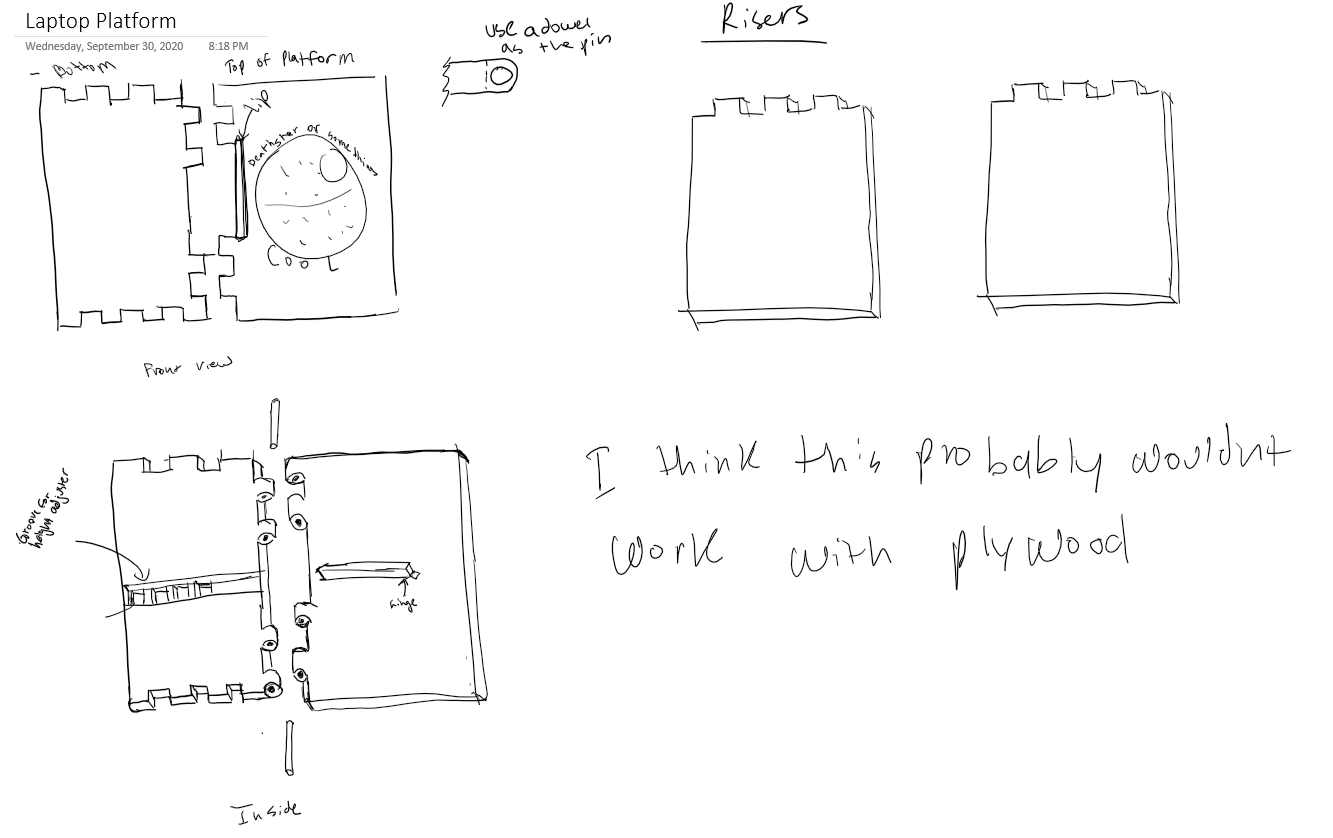 Laptop Platform
Wednesday, September 30, 2020 8:18 PM
- Bottom
Top of Platform
Lip
Deathstar or something
COOL
use a dowel
as the pin
Risers
Front view
Groove for
height adjuster
hinge
Inside
I think this probably wouldnt
work with plywood